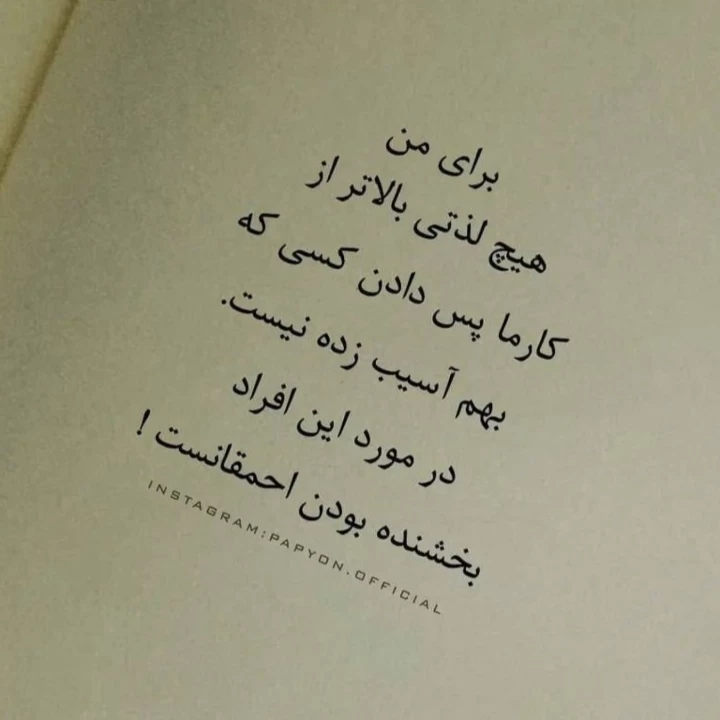 برای من
هیچ لذتی بالاتر از
کارما پس دادن کسی که
بهم آسیب زده نیست.
در مورد این افراد
بخشنده بودن احمقانست !
INSTAGRAM:PAPYON.OFFICIAL